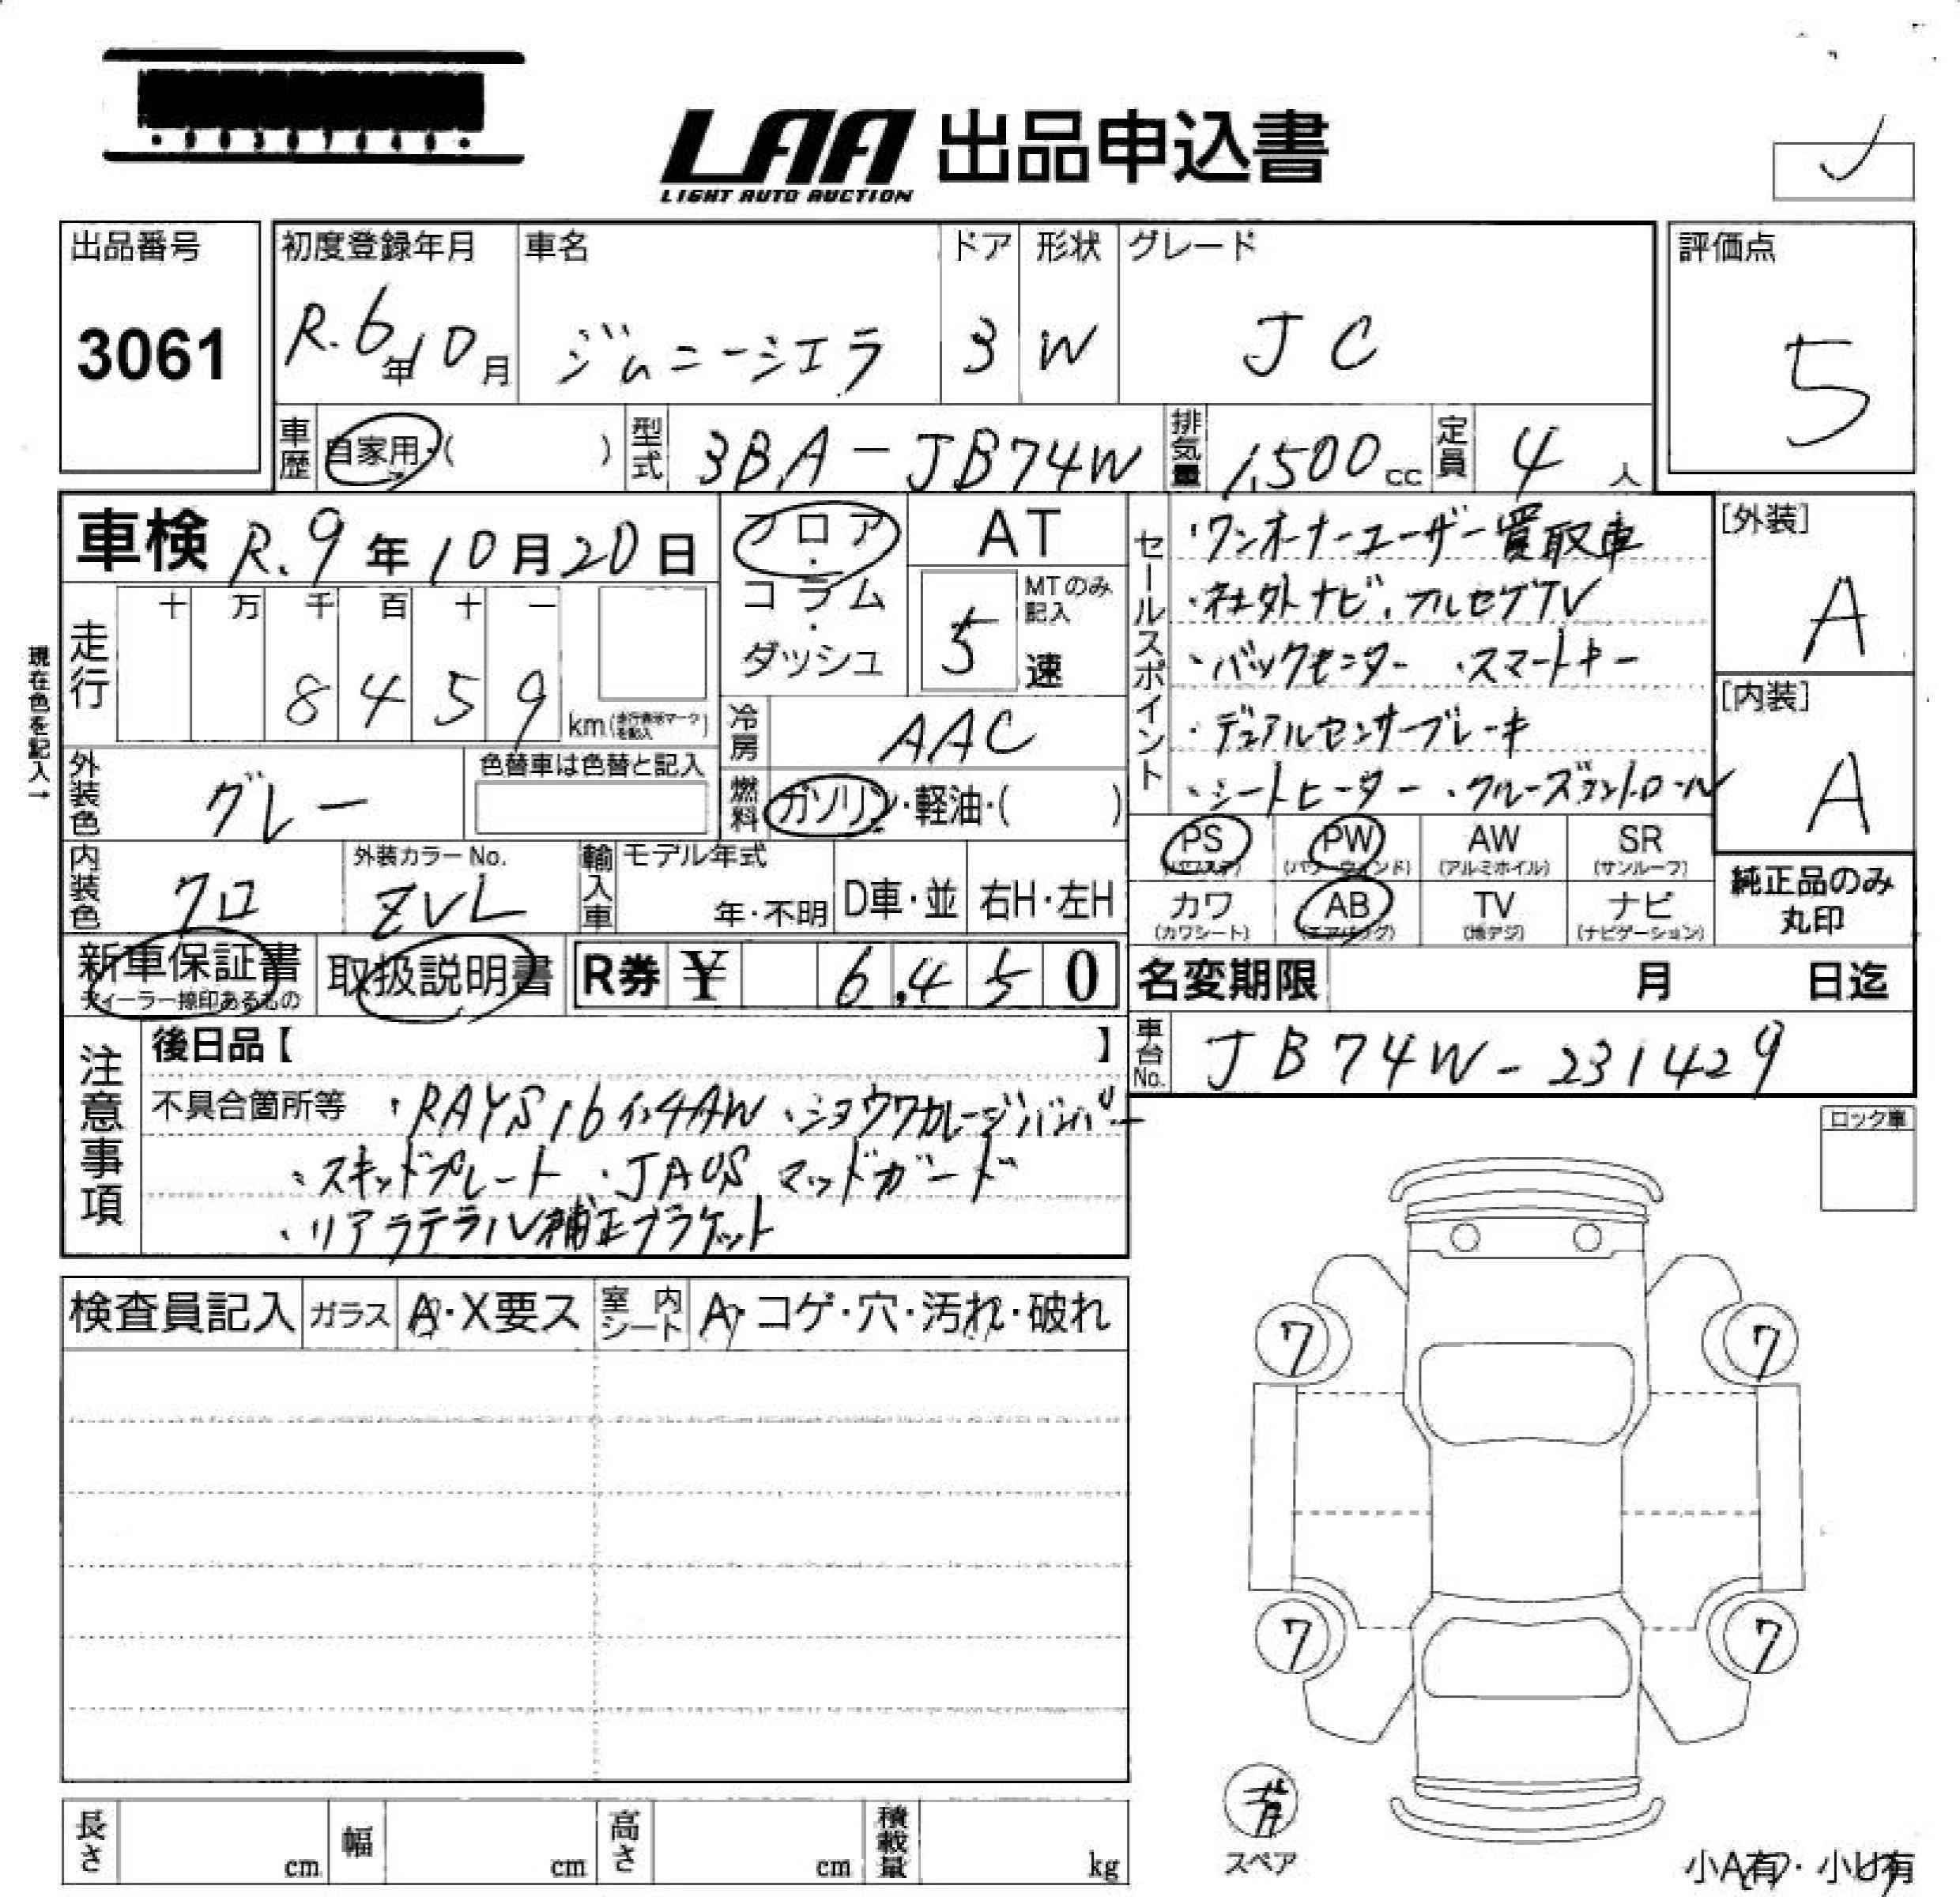 LAA 出品申込書
LIGHT AUTO AUCTION
出品番号
3061
初度登録年月
R.6年10月
車名
ジムニーシエラ
ドア
3
形状
W
グレード
JC
評価点
5
車歴 自家用・( )
型式 3BA-JB74W
排気量 1,500cc
定員 4人
車検 R.9年10月20日
フロア・コラム・ダッシュ
AT
5速 MTのみ記入
現在色を記入→
走行
十 万 千 百 十 一
8 4 5 9 km(走行表示マークを記入)
冷房 AAC
外装色 グレー
色替車は色替と記入
燃料 ガソリン・軽油・( )
内装色 クロ
外装カラーNo. ZVL
輸入車 モデル年式 年・不明 D車・並 右H・左H
セールスポイント
・ワンオーナーユーザー買取車
・社外ナビ、フルセグTV
・バックモニター ・スマートキー
・デュアルセンサーブレーキ
・シートヒーター ・クルーズコントロール
[外装]
A
[内装]
A
PS (パワステ) PW (パワーウィンド) AW (アルミホイル) SR (サンルーフ)
カワ (カワシート) AB (エアバッグ) TV (地デジ) ナビ (ナビゲーション)
純正品のみ丸印
新車保証書 ディーラー捺印あるもの
取扱説明書
R券 ¥ 6,450
名変期限 月 日迄
車台No. JB74W-231429
注意事項
後日品【 】
不具合箇所等 ・RAYS16インチAW ・ショウワガレージバンパー
・スキッドプレート ・JAOS マッドガード
・リアラテラル補正ブラケット
ロック車
検査員記入 ガラス A・X要ス 室内シート A・コゲ・穴・汚れ・破れ
7 7
7 7
背
スペア
小A有・小U有
長さ cm 幅 cm 高さ cm 積載量 kg